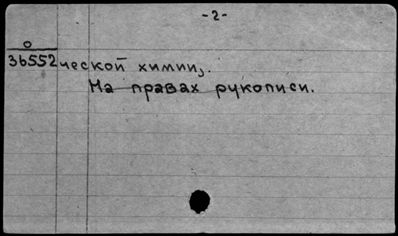 -2-
O
36552 ческой химии,.
На правах рукописи.